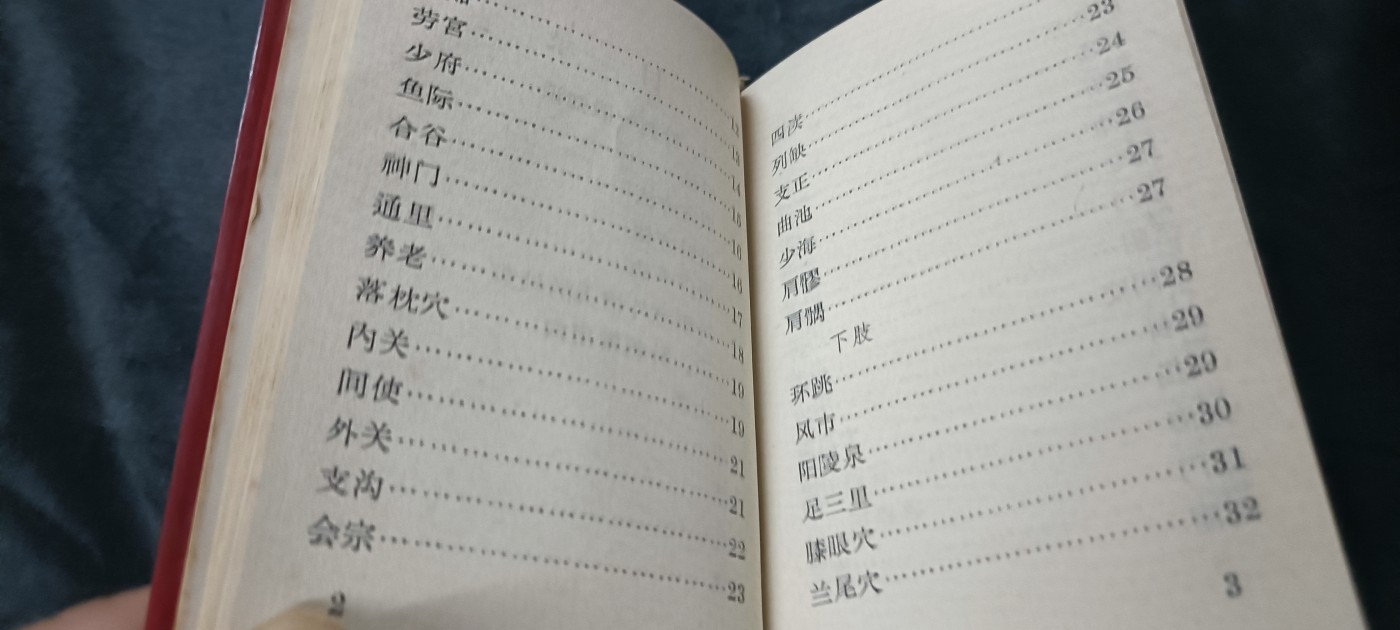 劳宫……13
少府……14
鱼际……15
合谷……16
神门……16
通里……17
养老……18
落枕穴……19
内关……19
间使……21
外关……21
支沟……22
会宗……23
2
四渎……
列缺……23
支正……24
曲池……25
少海……26
肩髎……27
肩髃……27
下肢
环跳……28
风市……29
阳陵泉……29
足三里……30
膝眼穴……31
兰尾穴……32
3